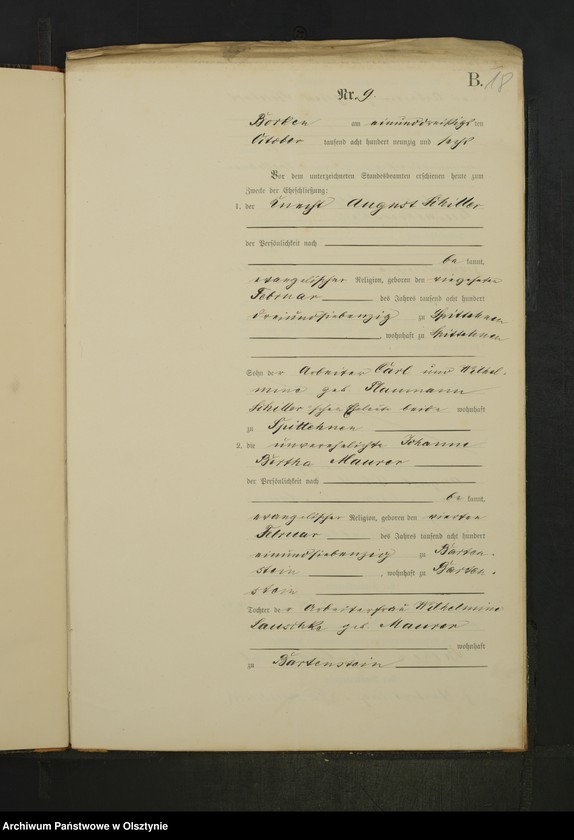 B. 18
Nr. 9.
Borken am einunddreißigsten
October tausend acht hundert neunzig und sechs
Vor dem unterzeichneten Standesbeamten erschienen heute zum
Zwecke der Eheschließung:
1. der Knecht August Schiller
der Persönlichkeit nach
be kannt,
evangelischer Religion, geboren den vierzehnten
Februar des Jahres tausend acht hundert
dreiundsiebenzig zu Spittehnen
, wohnhaft zu Spittehnen
Sohn der Arbeiter Carl und Wilhel-
mine geb. Plaumann
Schiller'schen Eheleute beide wohnhaft
zu Spittehnen
2. die unverehelichte Johanne
Bertha Maurer
der Persönlichkeit nach
be kannt,
evangelischer Religion, geboren den vierten
Februar des Jahres tausend acht hundert
einundsiebenzig zu Barten-
stein , wohnhaft zu Barten-
stein
Tochter der Arbeiterfrau Wilhelmine
geb. Maurer
wohnhaft
zu Bartenstein
Archiwum Państwowe w Olsztynie